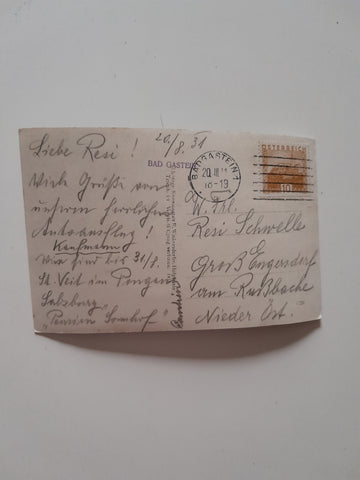 20/8. 31
Liebe Resi!
Viele Grüße von
unserem herrlichen
Autoausflug!
Kaufmann
Wir sind bis 31/8.
St. Veit im Pongau
Salzburg
"Pension Sonnhof"
BAD GASTEIN
BADGASTEIN 1
20.VIII.31
18-19
ÖSTERREICH
10
Resi Schwelle
Groß Engersdorf
am Rußbache
Nieder Öst.